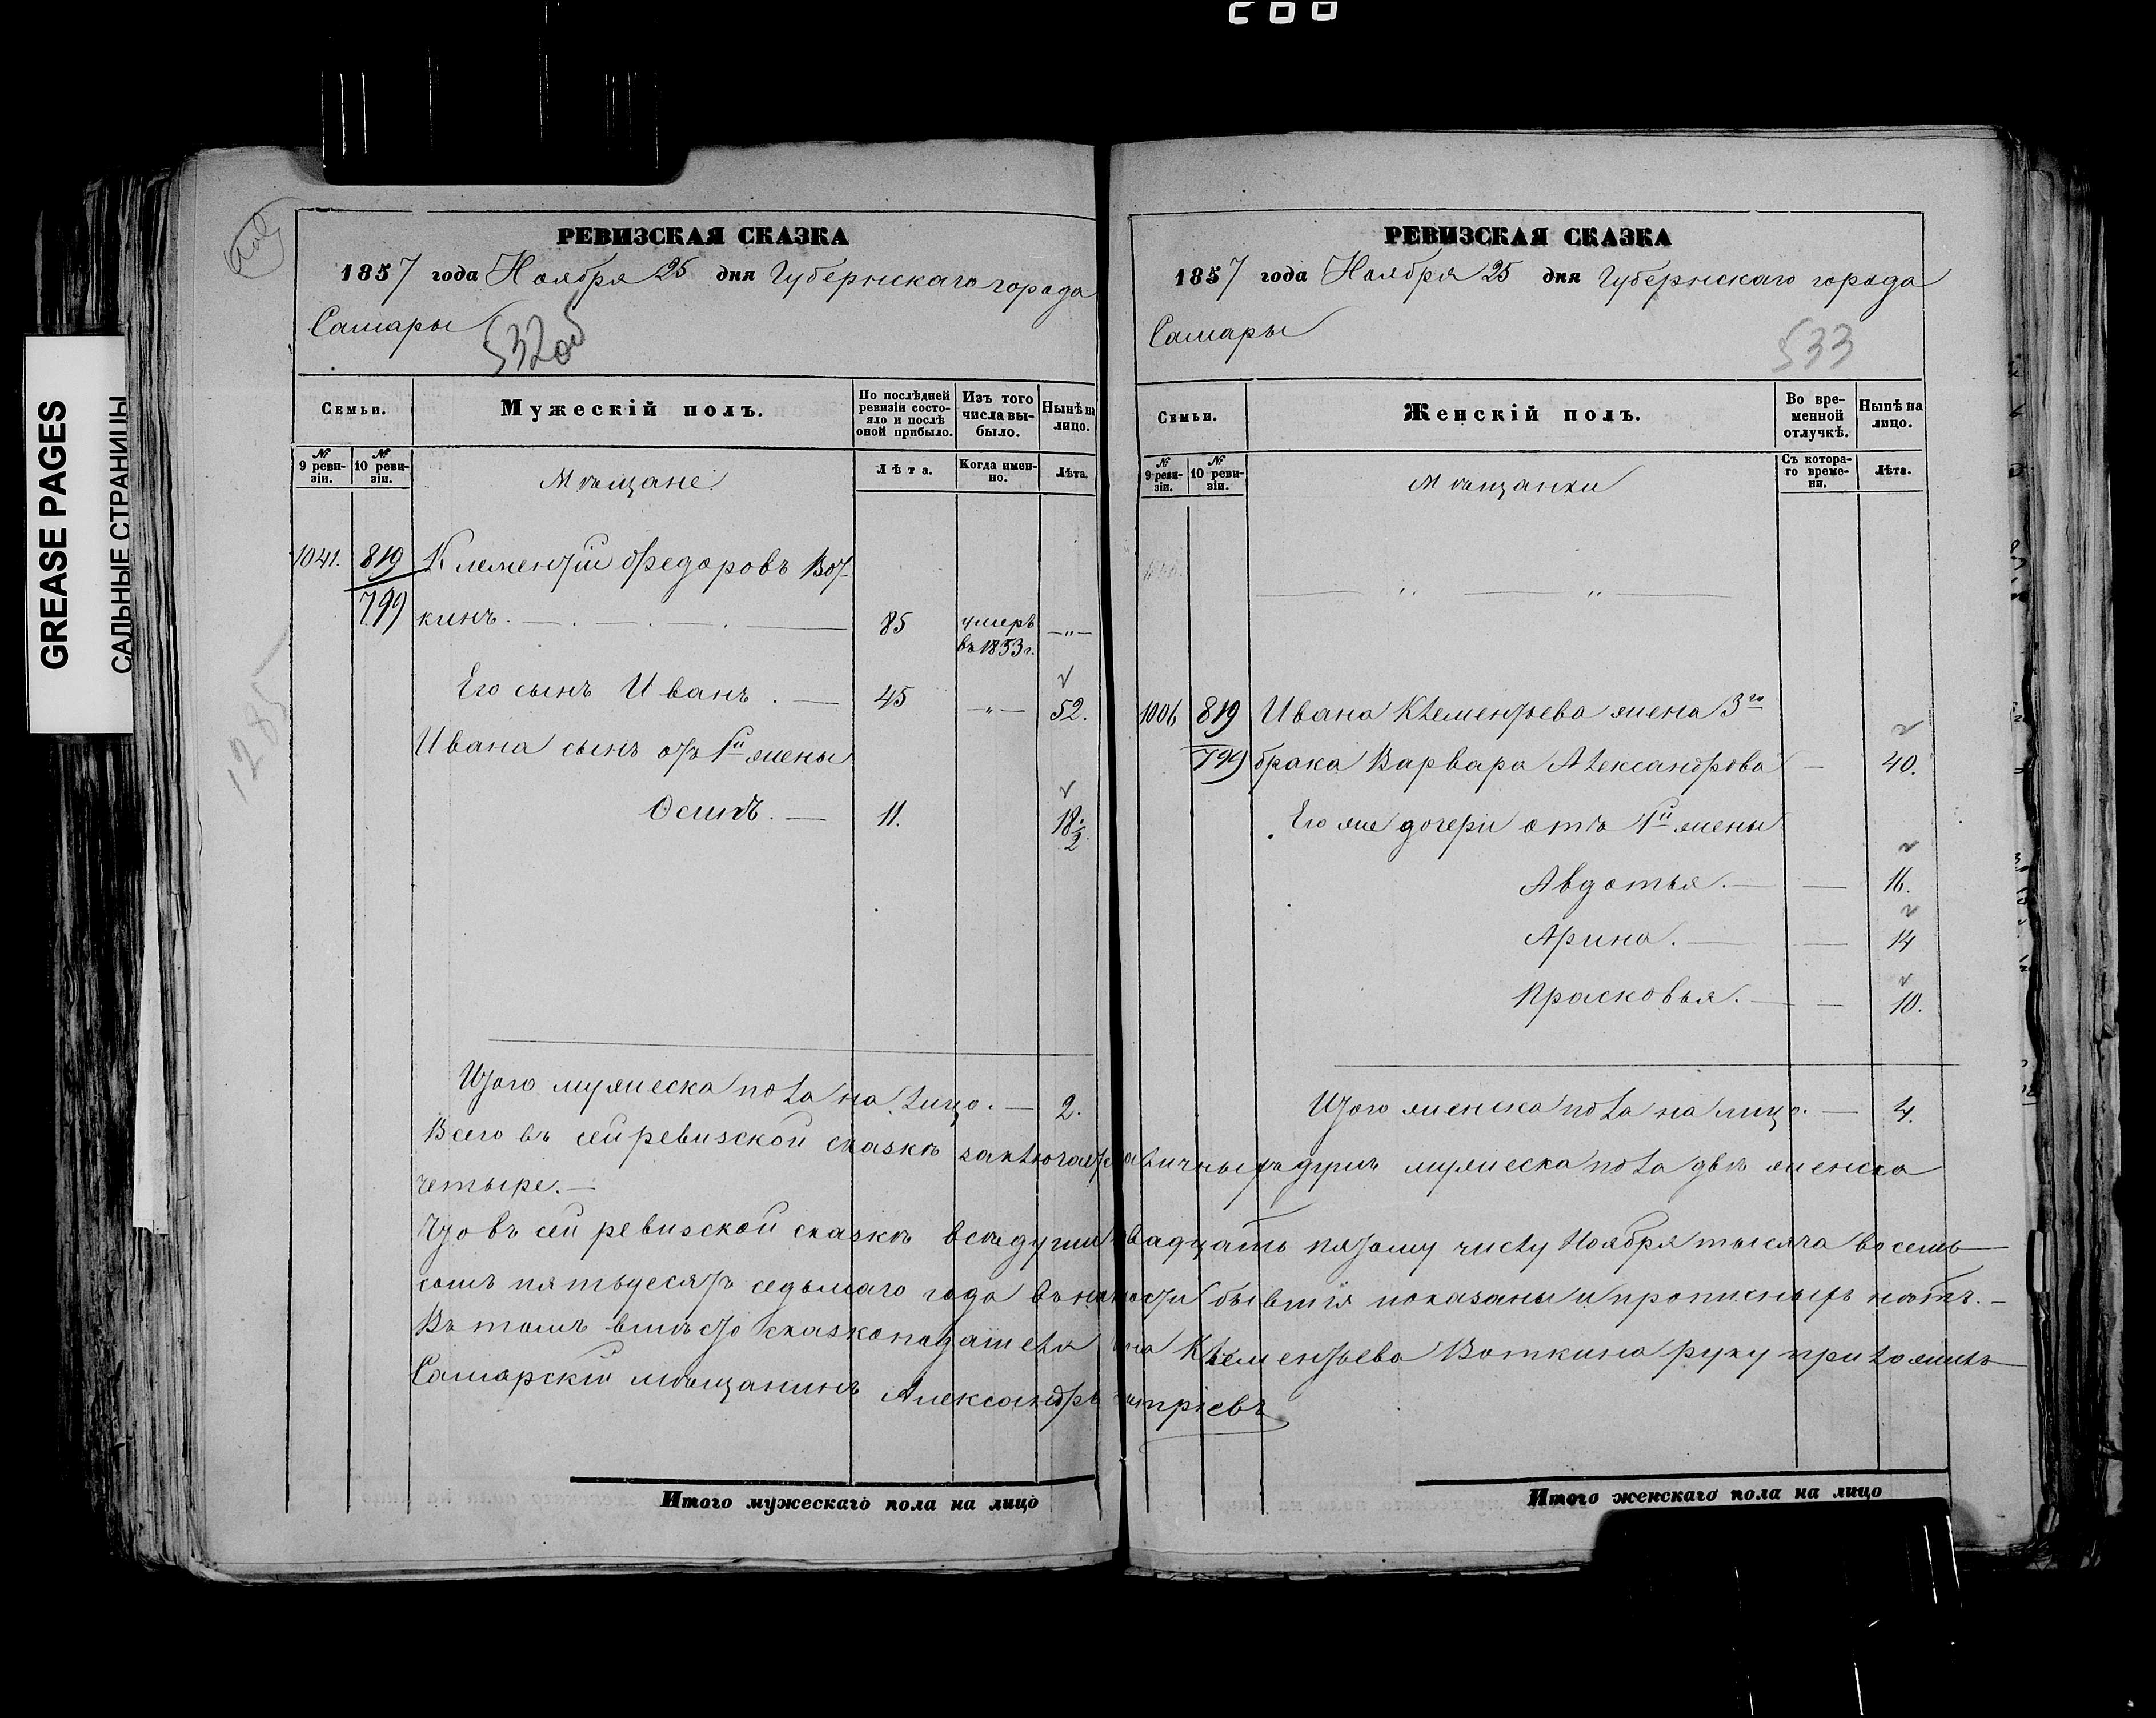 GREASE PAGES
САЛЬНЫЕ СТРАНИЦЫ
РЕВИЗСКАЯ СКАЗКА
1857 года Ноября 25 дня Губернскаго города
Самары
532об
1285
Семьи.
Мужескій полъ.
По послѣдней ревизіи состояло и послѣ оной прибыло.
Изъ того числа выбыло.
Нынѣ на лицо.
№ 9 ревизіи.
№ 10 ревизіи.
Мѣщане
Лѣта.
Когда именно.
Лѣта.
1041. 819 Клементій Федоровъ Вот-
799 кинъ. 85 умеръ въ 1853 г. — „ —
Его сынъ Иванъ. — 45 — „ — 52.
Ивана сынъ отъ 1й жены
Осипъ. — 11. 18 1/2.
Итого мужеска пола на лицо. — 2.
РЕВИЗСКАЯ СКАЗКА
1857 года Ноября 25 дня Губернскаго города
Самары
533
Семьи.
Женскій полъ.
Во временной отлучкѣ.
Нынѣ на лицо.
№ 9 ревизіи.
№ 10 ревизіи.
Мѣщанки
Съ котораго времени.
Лѣта.
— „ — „ —
1006 819 Ивана Клементьева жена 3го
799 брака Варвара Александрова — 40.
Его же дочери отъ 1й жены
Авдотья. — — 16.
Арина. — — 14
Прасковья. — — 10.
Итого женска пола на лицо. — 4.
Всего въ сей ревизской сказкѣ заключается наличныхъ душъ мужеска пола двѣ женска
четыре. —
Что въ сей ревизской сказкѣ всѣ души двадцать пятому числу Ноября тысяча восемь
сотъ пятьдесятъ седьмаго года въ наличности бывшія показаны и прописныхъ нѣтъ. —
Въ томъ вмѣсто сказкоподателя Клементьева Воткина руку приложилъ
Самарскій мѣщанинъ Александръ
Итого мужескаго пола на лицо
Итого женскаго пола на лицо